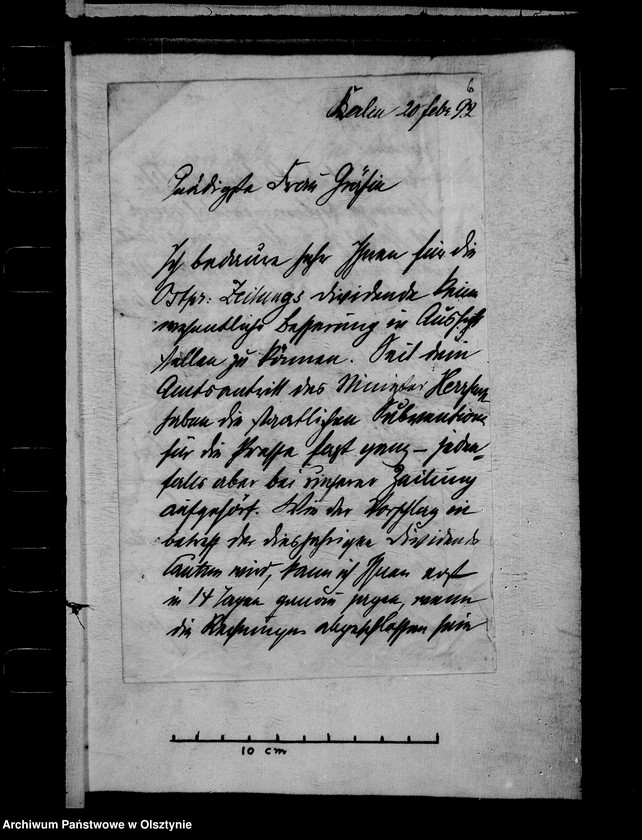 6
Berlin 20 Febr 92
Gnädigste Frau Gräfin
Ich bedaure sehr Ihnen für die
Ostpr: Zeitungs dividende keine
wesentliche Besserung in Aussicht
stellen zu können. Seit dem
Amtsantritt des Minister Herrfurth
haben die staatlichen Subventionen
für die Presse fast ganz – jeden=
falls aber bei unserer Zeitung
aufgehört. Wie der Vorschlag in
betreff der diesjährigen Dividende
lauten wird, kann ich Ihnen erst
in 14 Tagen genau sagen, wenn
die Rechnungen abgeschlossen sein
10 cm
Archiwum Państwowe w Olsztynie